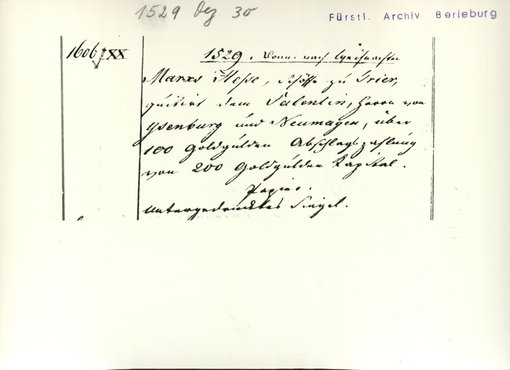 1529 Dez. 30
Fürstl. Archiv Berleburg
1606 XX
1529, Donn. nach Weihnachten
Marxs Hesse, Schöffe zu Trier,
quitirt dem Salentin, Herrn von
Ysenburg und Neumagen, über
100 Goldgülden Abschlagszahlung
von 200 Goldgülden Kapital.
Papier.
Untergedrucktes Siegel.